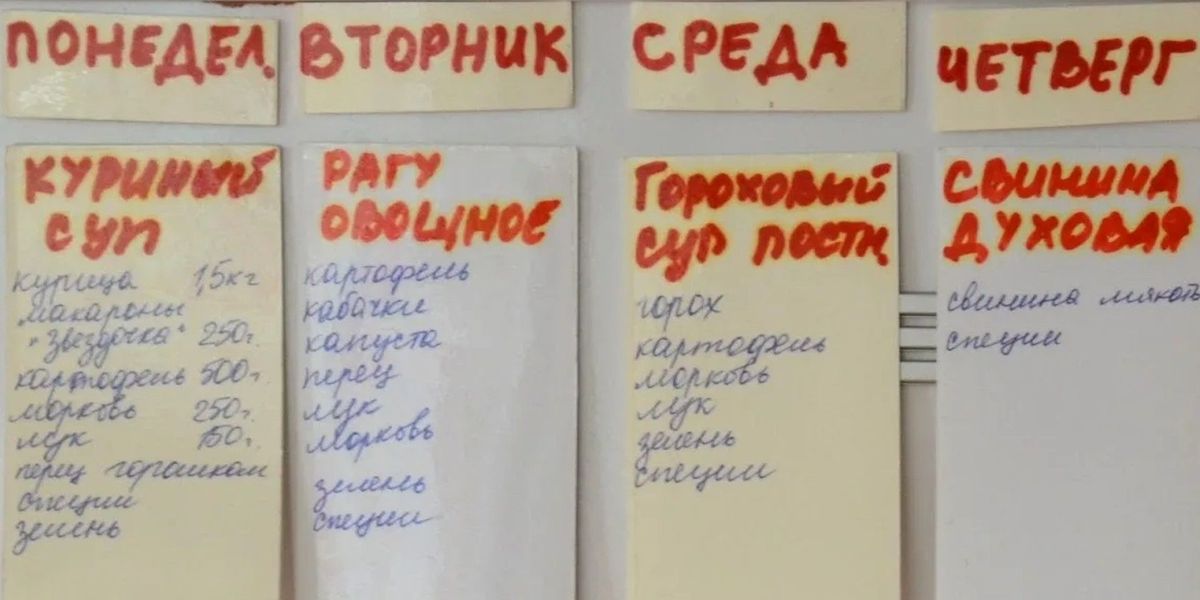 ПОНЕДЕЛ.
КУРИНЫЙ
СУП
курица 1,5кг
макароны
"Звездочка" 250г.
картофель 500г.
морковь 250г.
лук 150г.
перец горошком
специи
зелень
ВТОРНИК
РАГУ
ОВОЩНОЕ
картофель
кабачки
капуста
перец
лук
морковь
зелень
специи
СРЕДА
ГОРОХОВЫЙ
СУП ПОСТН.
горох
картофель
морковь
лук
зелень
специи
ЧЕТВЕРГ
СВИНИНА
ДУХОВАЯ
свинина мякоть
специи